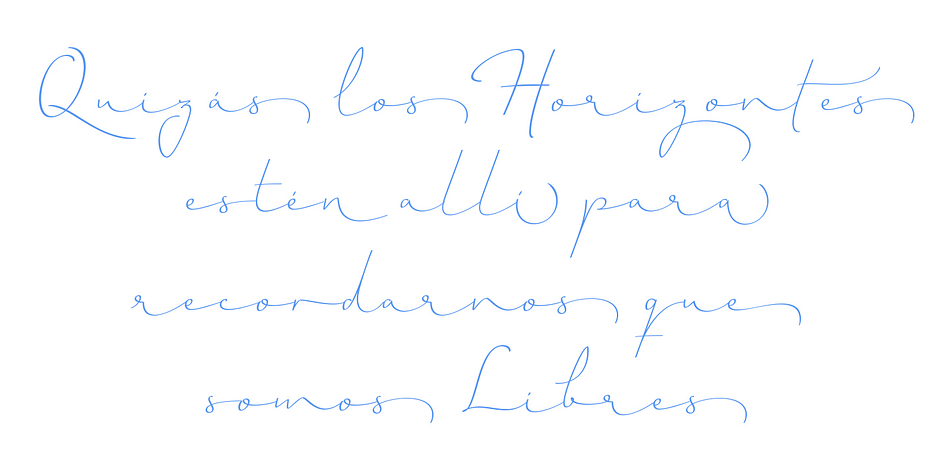 Quizás los Horizontes
estén alli para
recordarnos que
somos Libres